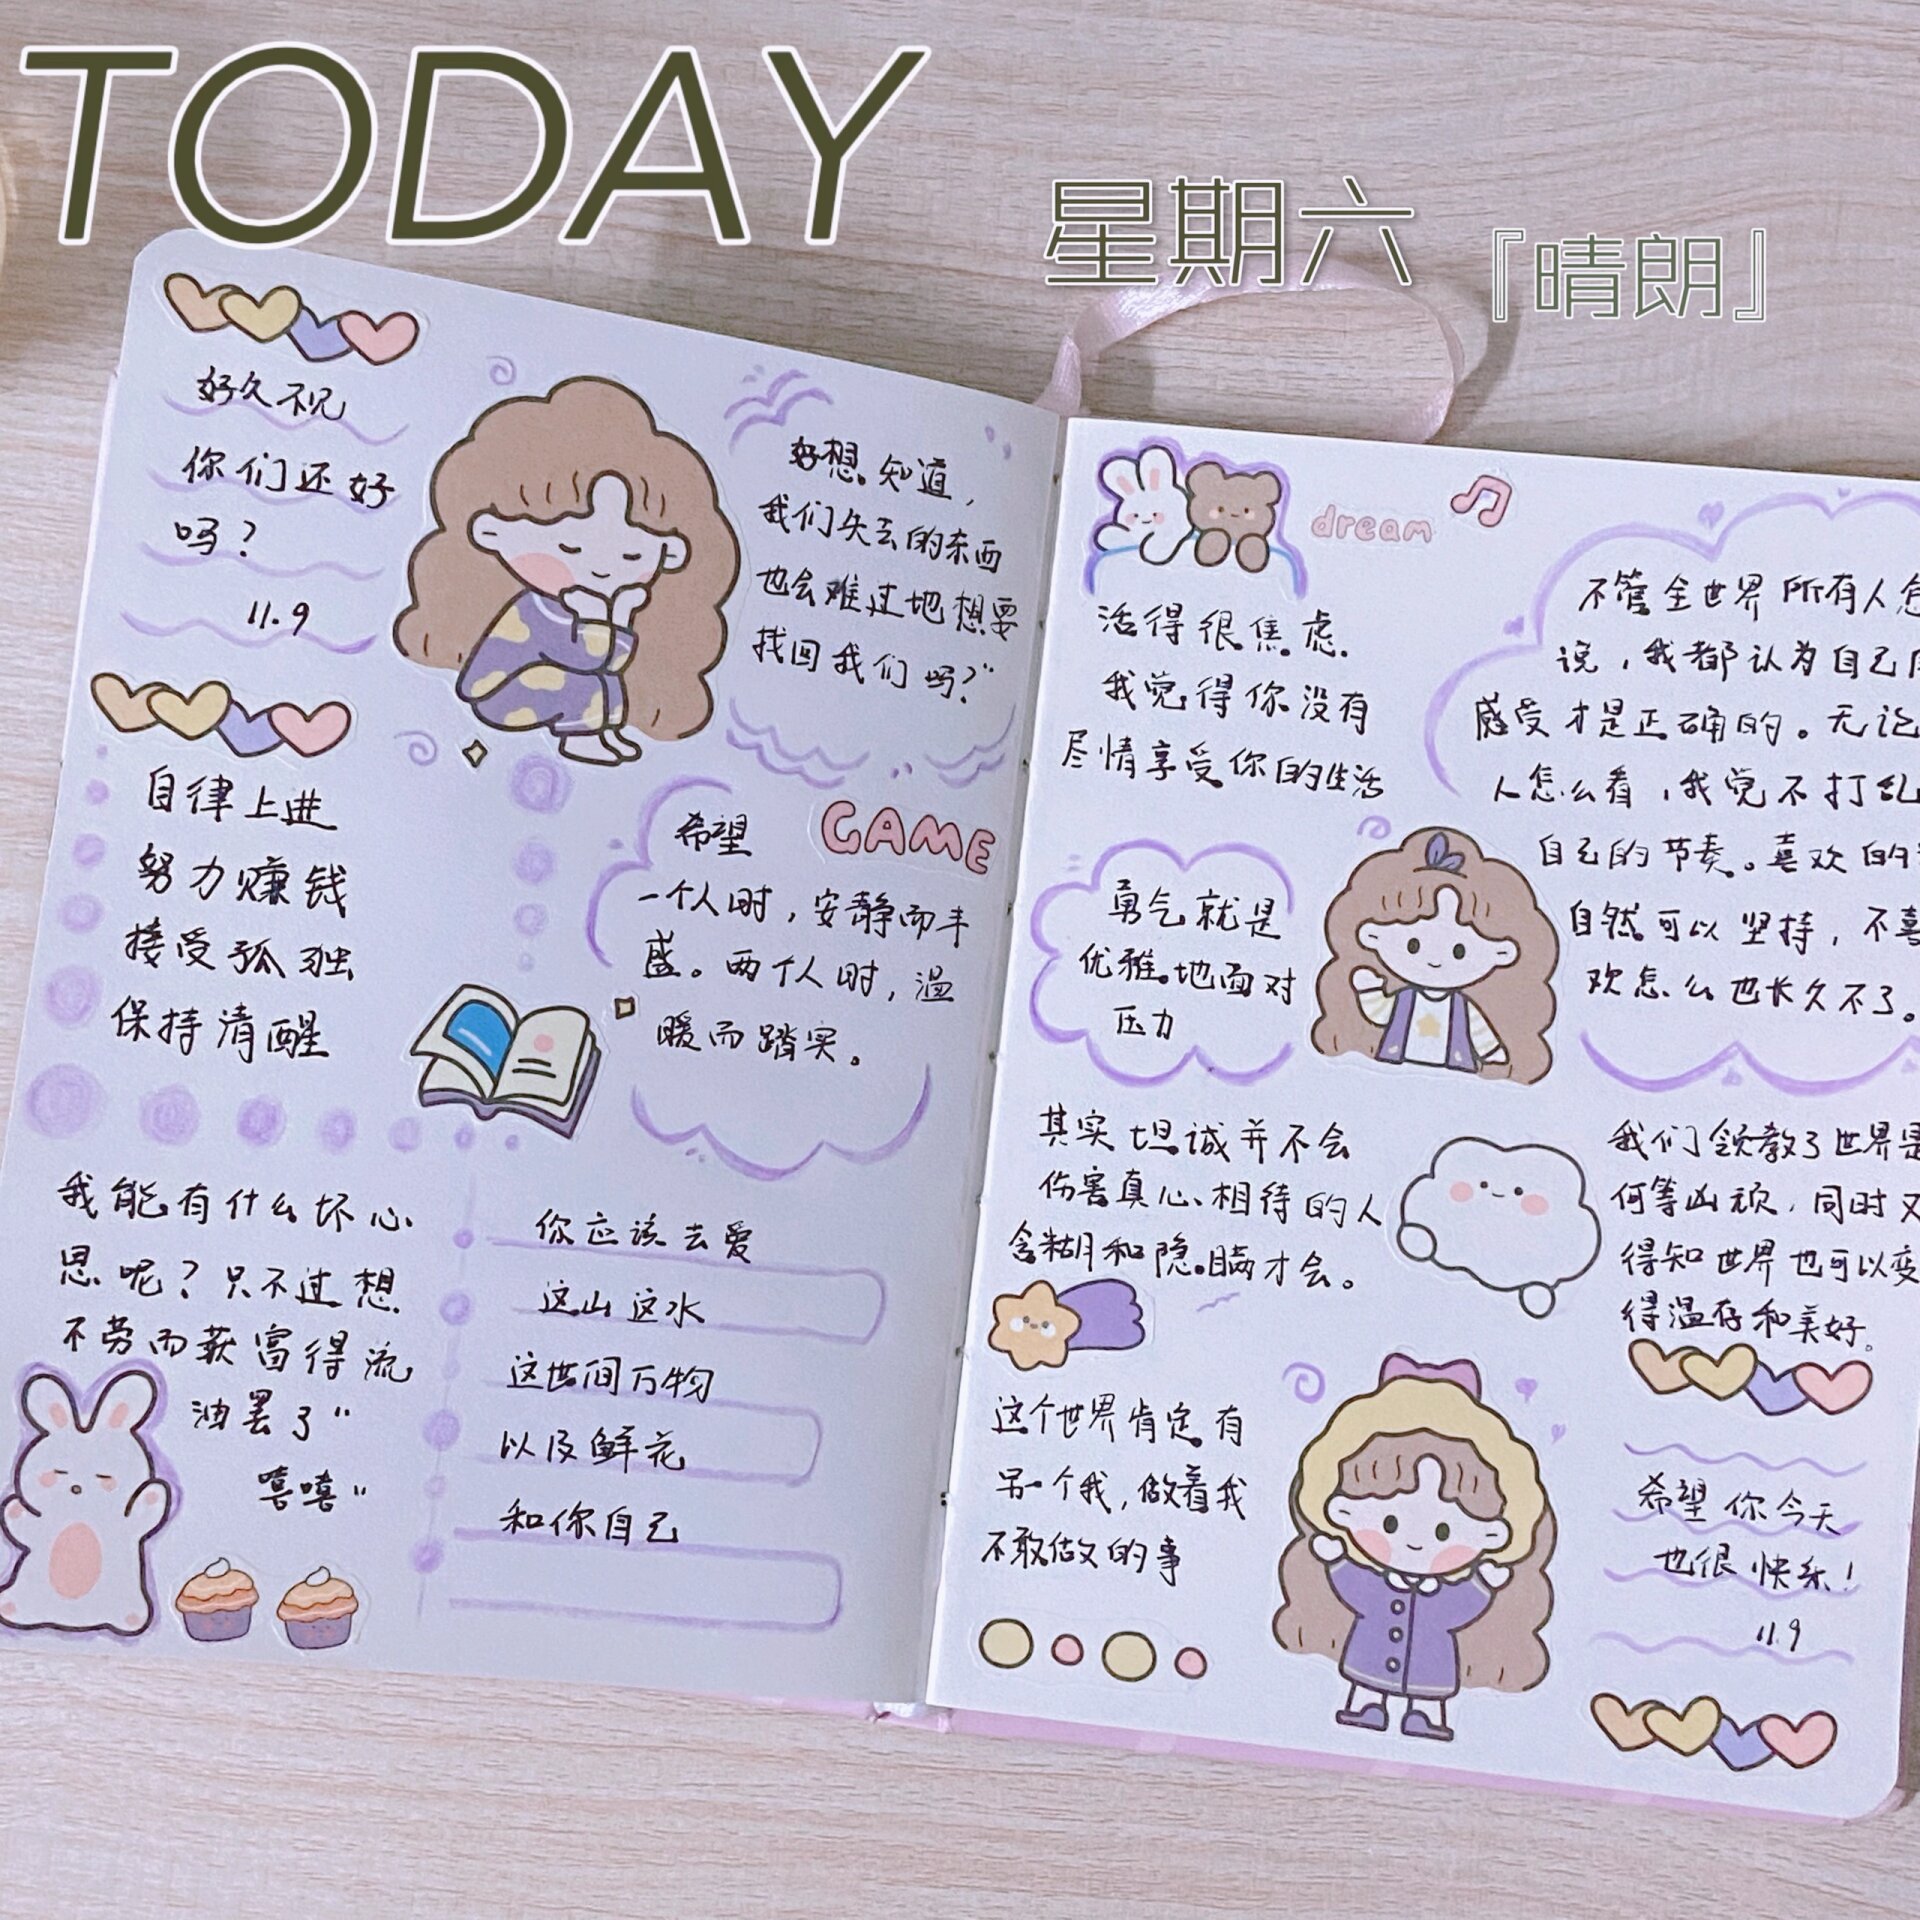 TODAY
星期六
『晴朗』
好久不见
你们还好
吗?
11.9
好想知道,
我们失去的东西
也会难过地想要
找回我们吗?"
自律上进
努力赚钱
接受孤独
保持清醒
希望
GAME
一个人时,安静而丰
盛。两个人时,温
暖而踏实。
我能有什么坏心
思呢?只不过想
不劳而获富得流
油罢了"
嘻嘻"
你应该去爱
这山这水
这世间万物
以及鲜花
和你自己
dream
活得很焦虑.
我觉得你没有
尽情享受你的生活
不管全世界所有人怎
说,我都认为自己
感受才是正确的。无论
人怎么看,我觉不打乱
自己的节奏。喜欢的
自然可以坚持,不喜
欢怎么也长久不了。
勇气就是
优雅地面对
压力
其实坦诚并不会
伤害真心相待的人
含糊和隐瞒才会。
我们领教了世界是
何等凶顽,同时又
得知世界也可以变
得温存和美好。
这个世界肯定有
另一个我,做着我
不敢做的事
希望你今天
也很快乐!
11.9